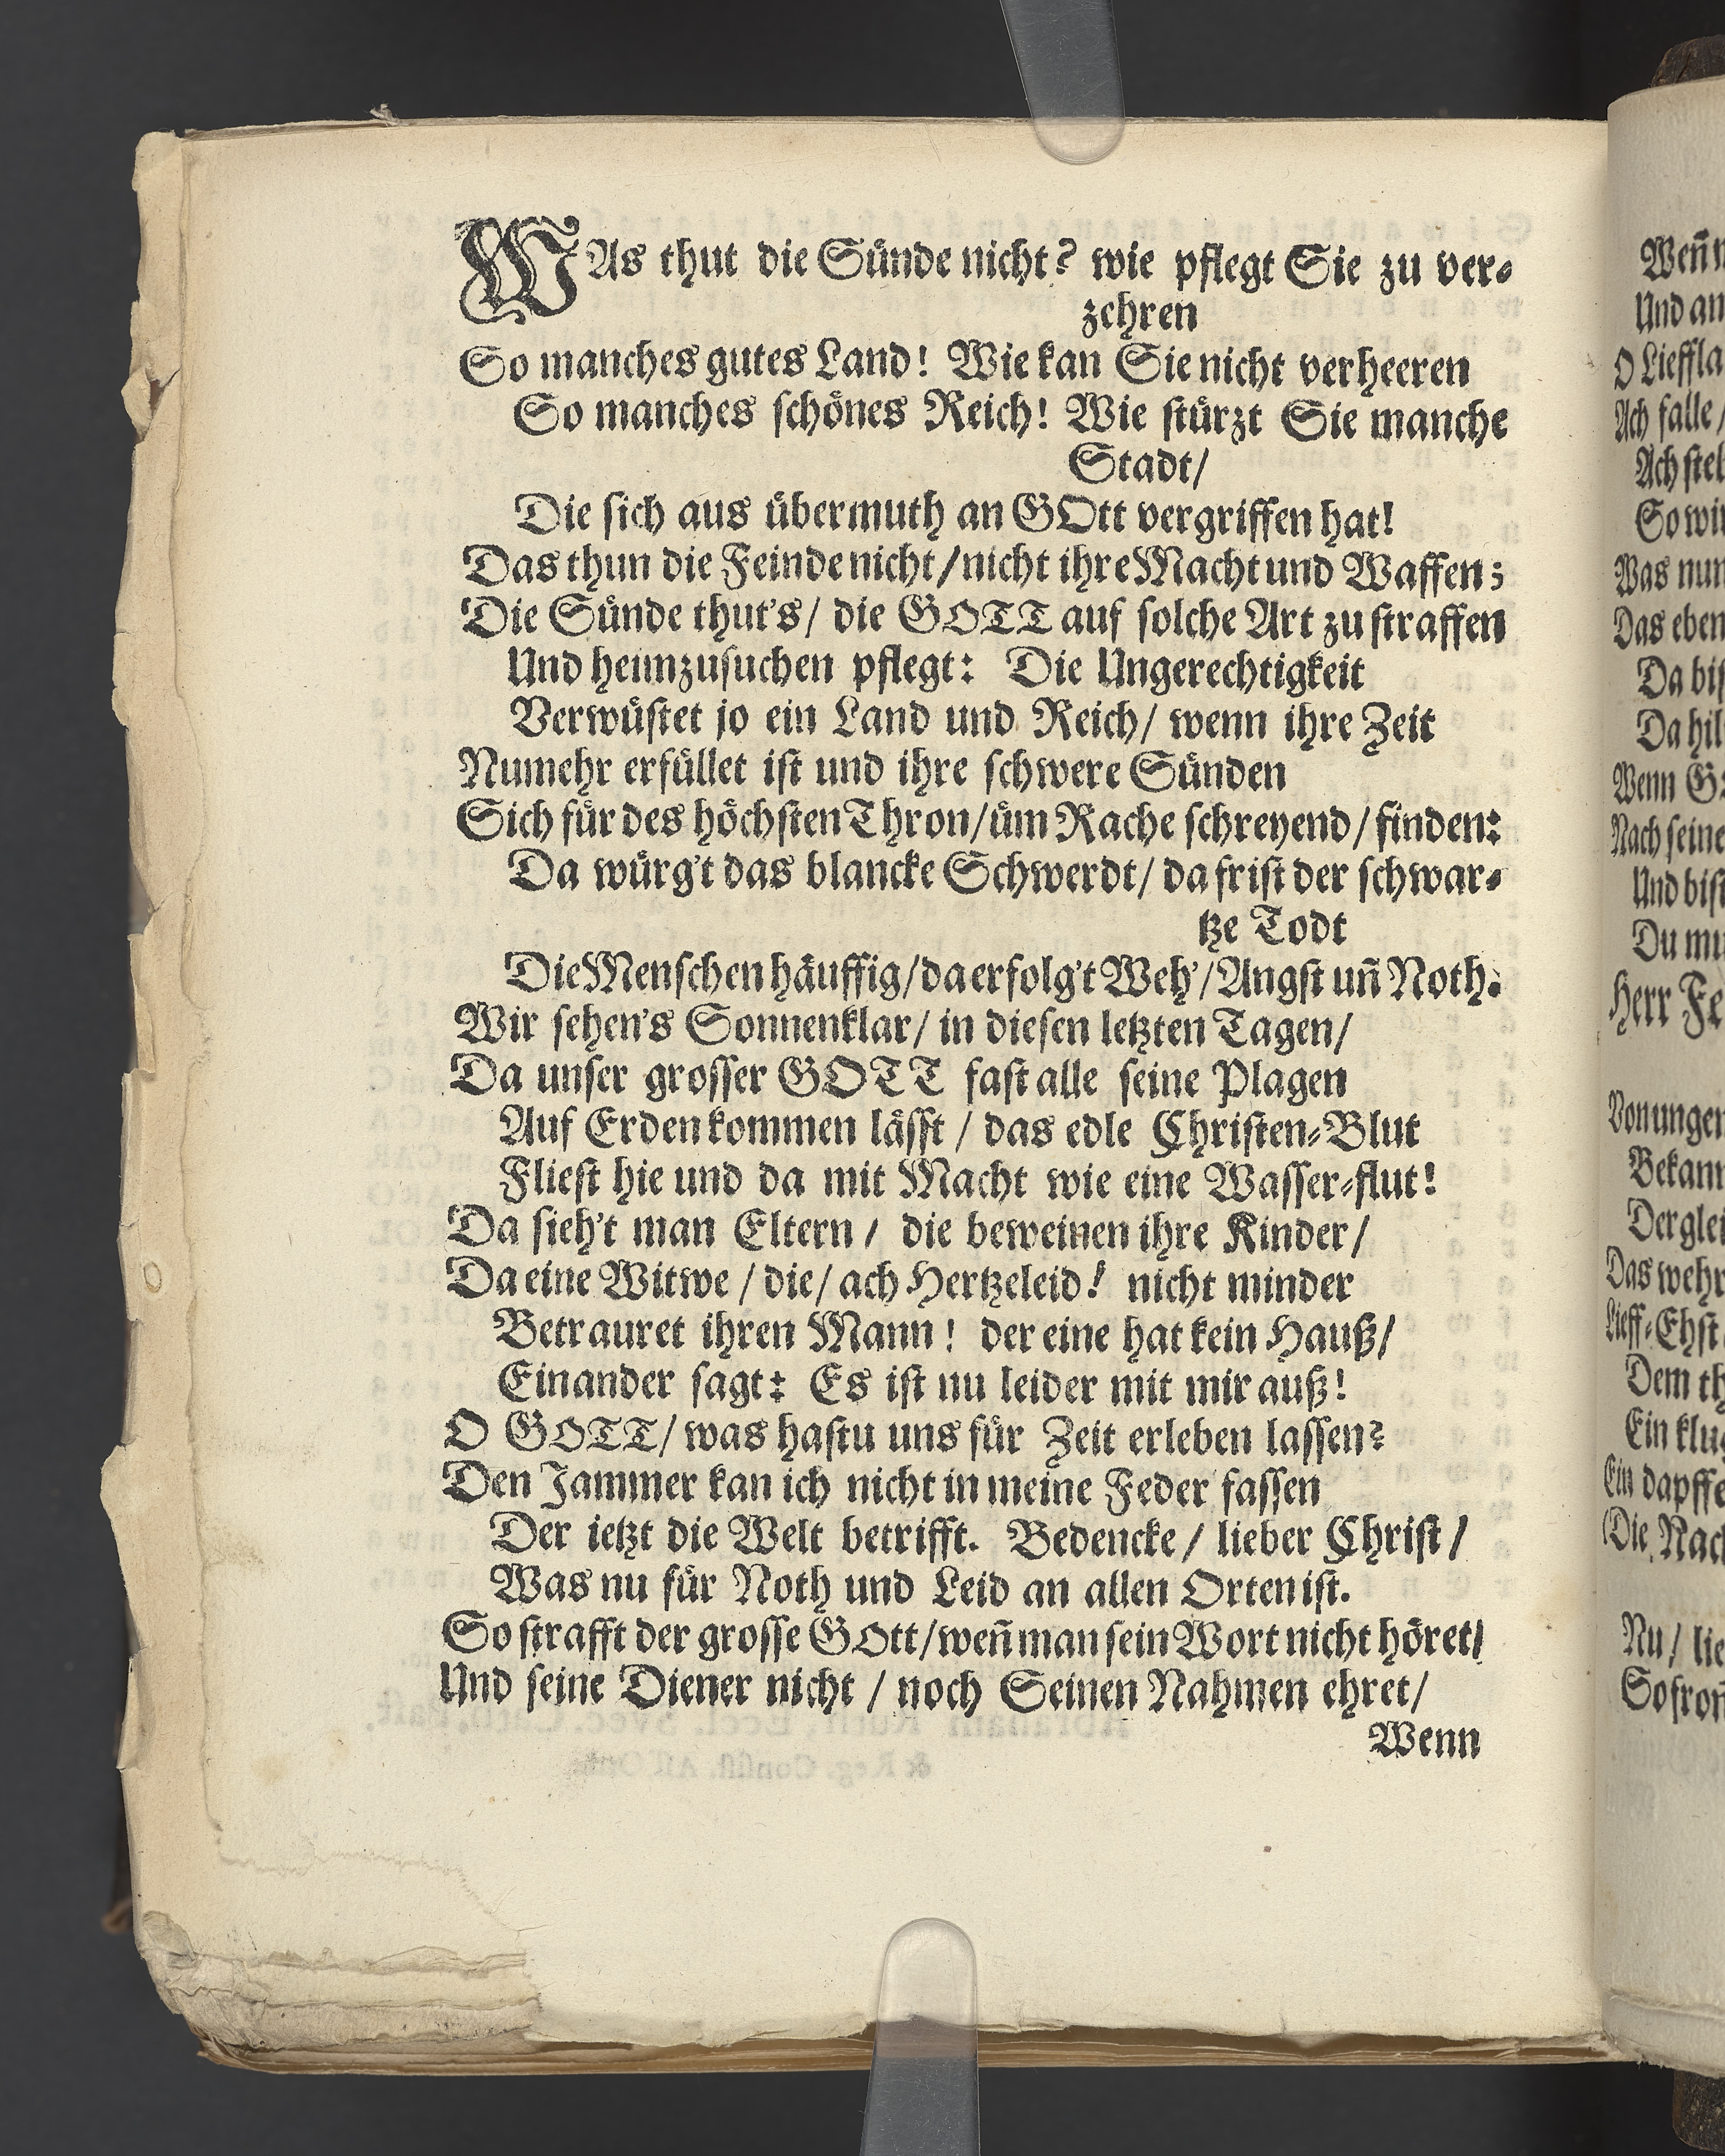 WAs thut die Sünde nicht? wie pflegt Sie zu ver-
zehren
So manches gutes Land! Wie kan Sie nicht verheeren
So manches schönes Reich! Wie stürzt Sie manche
Stadt/
Die sich aus übermuth an GOtt vergriffen hat!
Das thun die Feinde nicht/nicht ihre Macht und Waffen;
Die Sünde thut's/ die GOTT auf solche Art zu straffen
Und heimzusuchen pflegt: Die Ungerechtigkeit
Verwüstet jo ein Land und Reich/ wenn ihre Zeit
Numehr erfüllet ist und ihre schwere Sünden
Sich für des höchsten Thron/üm Rache schreyend/finden:
Da würg't das blancke Schwerdt/ da frist der schwar-
tze Todt
Die Menschen häuffig/da erfolg't Weh'/Angst uñ Noth.
Wir sehen's Sonnenklar/ in diesen letzten Tagen/
Da unser grosser GOTT fast alle seine Plagen
Auf Erden kommen lässt / das edle Christen-Blut
Fliest hie und da mit Macht wie eine Wasser-flut!
Da sieh't man Eltern / die beweinen ihre Kinder/
Da eine Witwe / die/ ach Hertzeleid! nicht minder
Betrauret ihren Mann! der eine hat kein Hauß/
Ein ander sagt: Es ist nu leider mit mir auß!
O GOTT/ was hastu uns für Zeit erleben lassen?
Den Jammer kan ich nicht in meine Feder fassen
Der ietzt die Welt betrifft. Bedencke / lieber Christ/
Was nu für Noth und Leid an allen Orten ist.
So strafft der grosse GOtt/weñ man sein Wort nicht höret/
Und seine Diener nicht / noch Seinen Nahmen ehret/
Wenn
Und an
Ach falle/
So wir
Was nun
Das eben
Da hil
Wenn G
Nach seine
Und bist
Du mu
Herr Fe
Von unger
Bekann
Derglei
Das wehr
Lieff-Ehst
Dem th
Ein klug
Ein dapffe
(Die Nach
Nu/ lie